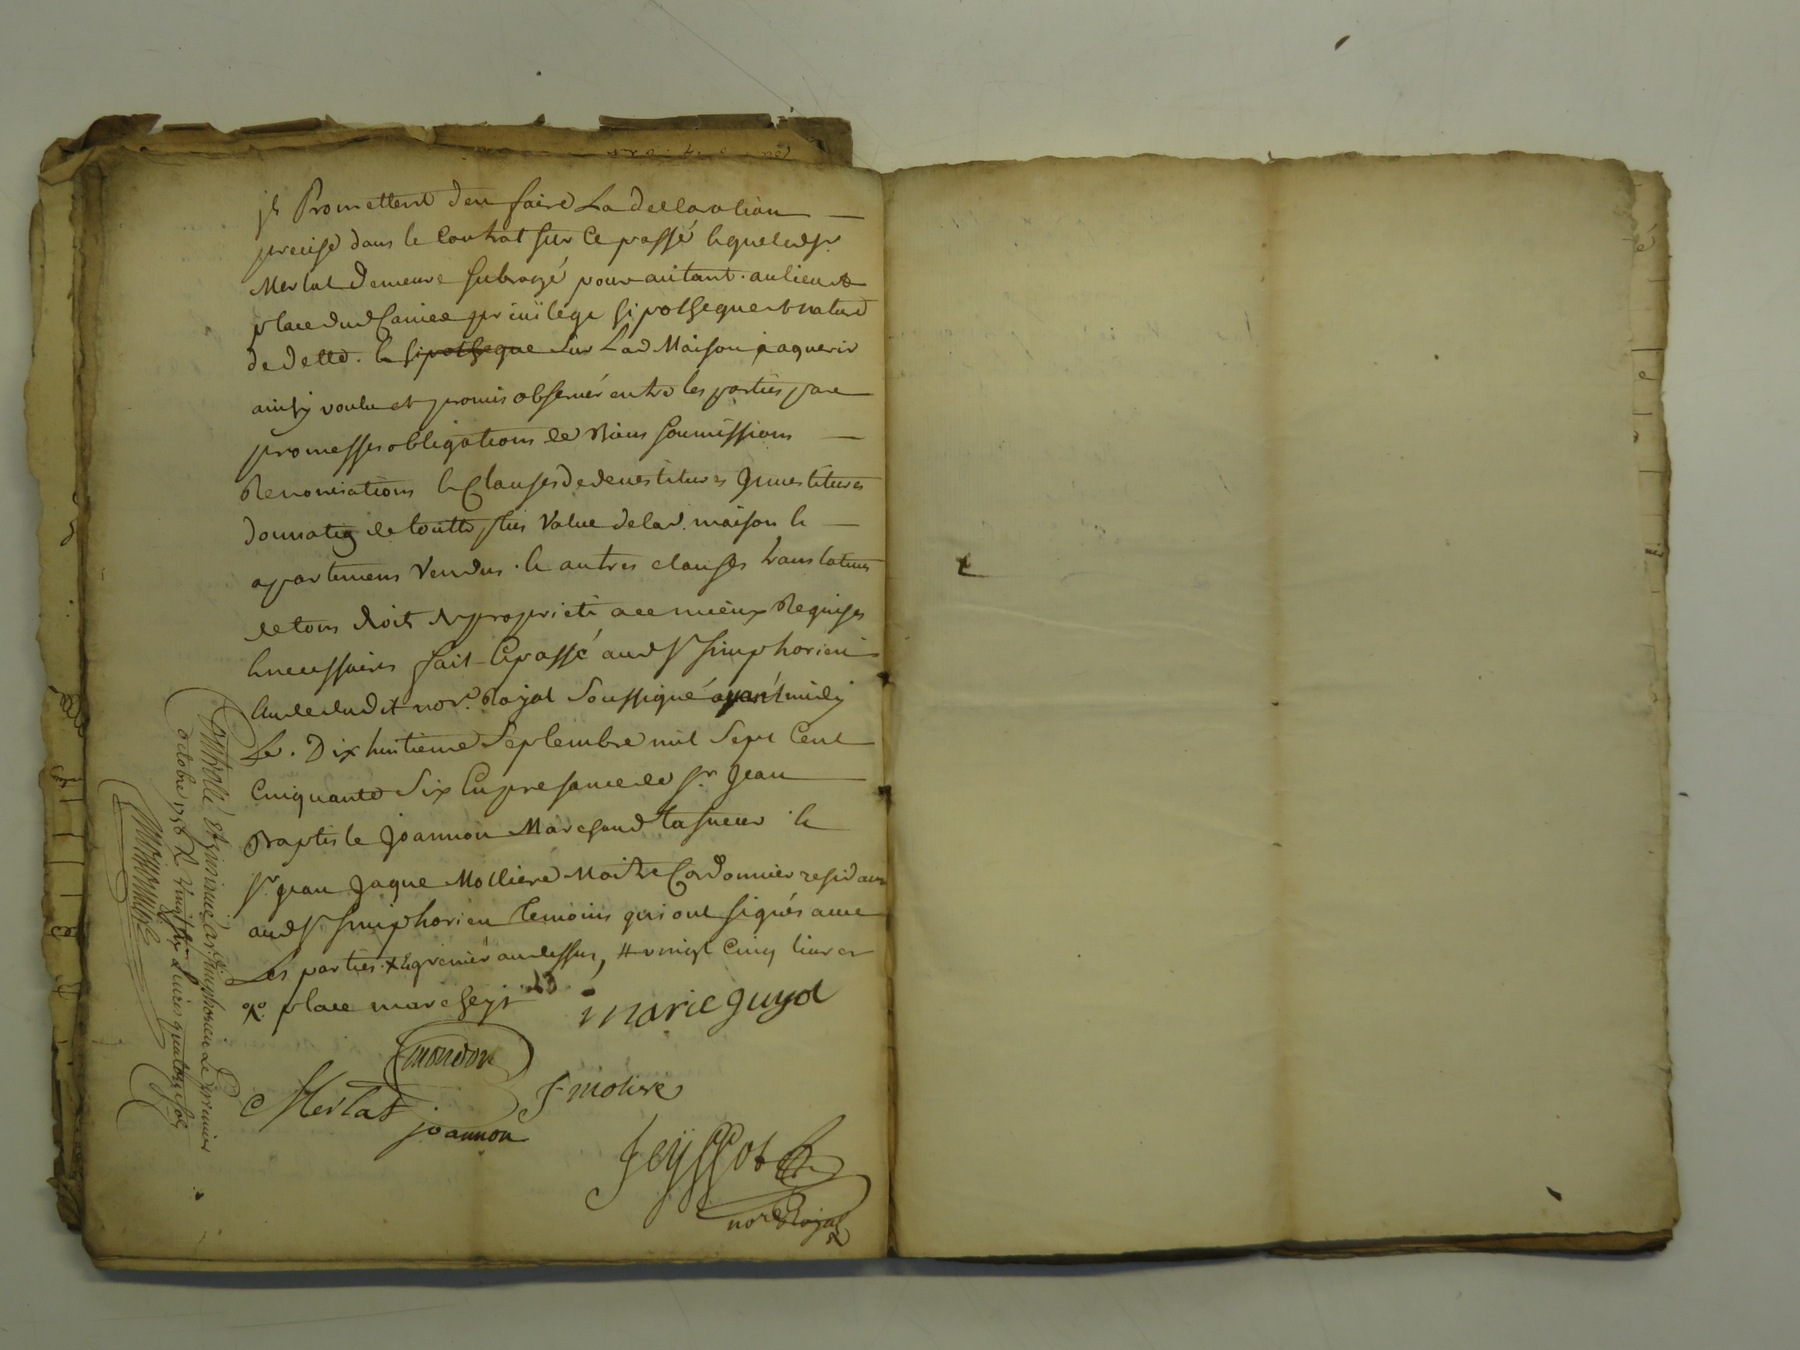 jls Promettent den faire La declaration
precise dans le Contrat sur ce passé lequel ledsr
Merlat demeure subrogé pour autant au lieu et
place dud privilege hipotheque et nature
de dette. & hipotheque sur Lad Maison a aquerir
ainsy voulu et promis observer entre les parties par
promesses obligations de Biens soumissions
Renonciations & Clauses de devestitures Jnvestitures
donnation de toutte plus Value delad. maison &
apartemens Vendus. & autres clauses translatives
de tous droits de proprieté a ce mieux Requises
& necessaires fait & passé aud St Simphorien
Etude dudit nore. Royal Soussigné avant midy
Le. Dix huitieme Septembre mil Sept Cent
Cinquante Six En presance de sr. Jean
Baptiste Joannon Marchand taneur &
sr. Jean Jaque Molliere Maitre Cordonnier residans
aud St Simphorien temoins qui ont signés avec
Les parties. x & grenier au dessus, # vingt Cinq livres
place
marie guyot
mondon
Merlat
F molire
joannon
Feyssot
nore Royal
Controllé a St Simphorien Le premier
octobre 1756 R vingt six Livres quatorze sols